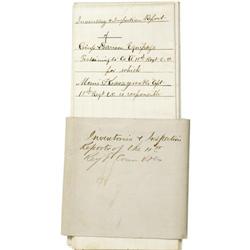 Inventory & Inspection Report
of
Camp & Garrison Equipage
Pertaining to Co. 11th Regt C.V.
for which
Capt
11th Regt C.V. is responsible
Inventories & Inspection
Reports of the 11th
Regt Conn Vols